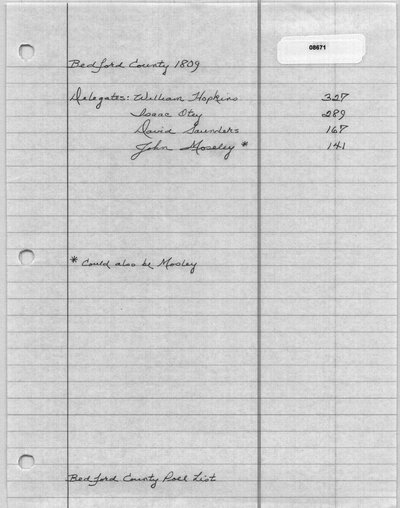 08671
Bedford County 1809
Delegates: William Hopkins 327
Isaac Otey 289
David Saunders 167
John Moseley * 141
* Could also be Mosley
Bedford County Poll List